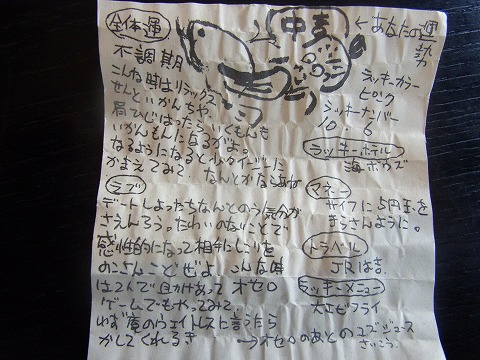 全体運
不調期
こんな時はリラックス
せんといかんちや。
肩ひじはったらいくもんも
いかんもんになるがよ。
なるようになると小タイガーに
かまえてみて。なんとかなるわね
ラブ
デートしよったちなんとのう気分が
さえんろう。たわいのないことで
感性的になって相手にしこりを
のこさんことぜよ こんな時
は2人で 出かけあって オセロ
ゲームでもやってみて。
いず庵のウェイトレスと言うたら
かしてくれるき
→オセロのあとの ユズジュース
さいこう。
中吉
←あなたの運勢
ラッキーカラー
ピンク
ラッキーナンバー
10.6
ラッキーホテル
海ボウズ
マネー
サイフに5円玉を
きらさんように。
トラベル
JRは吉。
ラッキーメニュー
大エビフライ